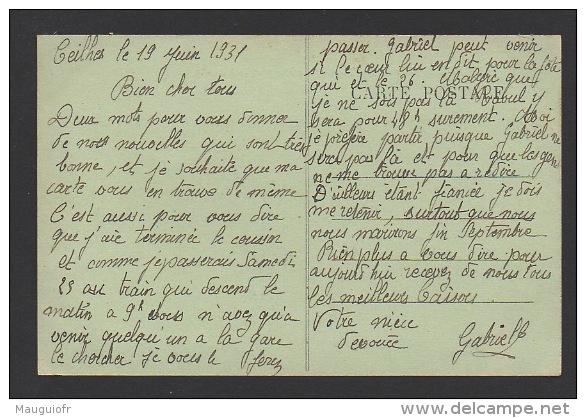 Ceilhes le 19 juin 1931
Bien cher tous
Deux mots pour vous donner
de nos nouvelles qui sont très
bonne, et je souhaite que ma
carte vous en trouve de même
C'est aussi pour vous dire
que j'aie terminée le coussin
et comme je passerais Samedi
au train qui descent le
matin a 9h vous n'avez qu'a
venir quelqu'un a la gare
le chercher je vous le ferez
passer. Gabriel peut venir
si le cœur lui en dit pour la fête
qui et le 26. Malgré que
CARTE POSTALE
je ne sois pas la Raoul y
sera pour 48h surement. Moi
je préfère partir puisque Gabriel ne
sera pas là et pour que les gens
ne me trouve pas a redire
D'ailleurs étant fiancée je dois
me retenir, surtout que nous
nous marirons fin Septembre
Rien plus a vous dire pour
aujourd'hui recevez de nous tous
les meilleurs baisers
Votre nièce
devouée Gabrielle
Mauguiofr
delcampe.net